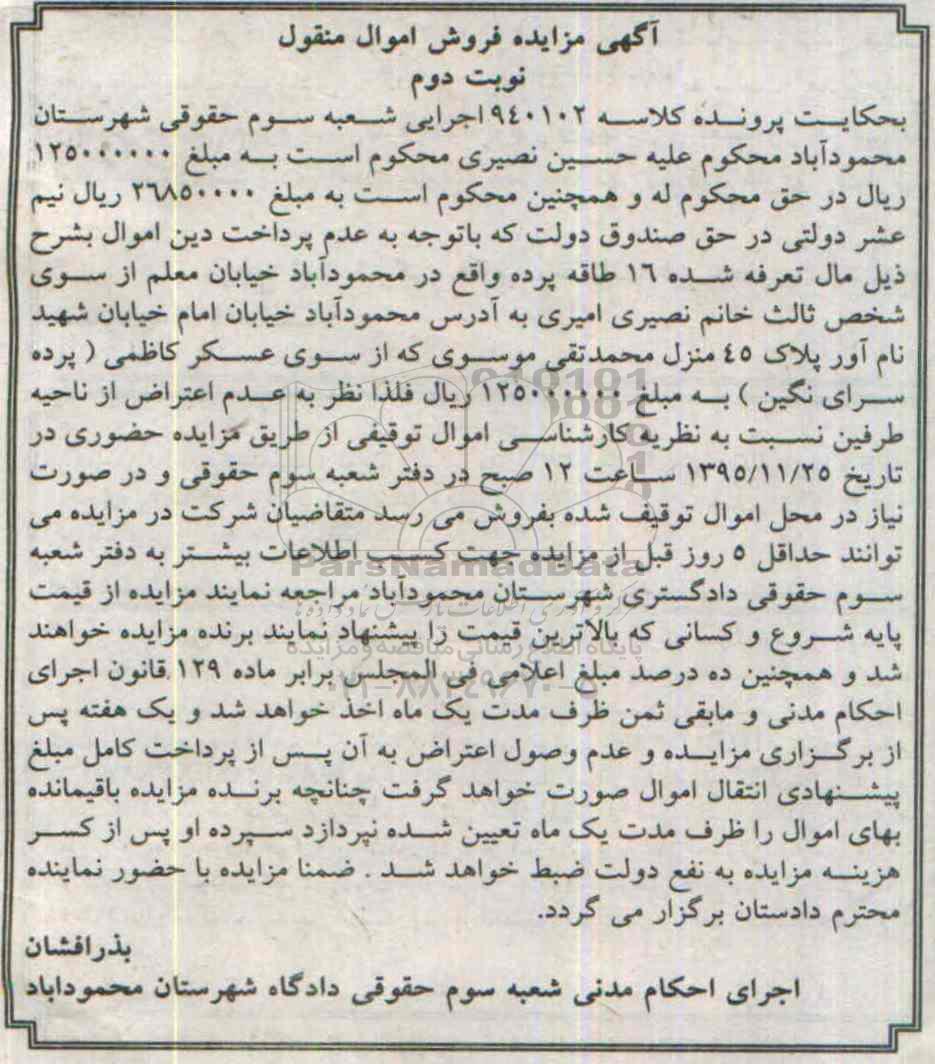 آگهی مزایده فروش اموال منقول
نوبت دوم
بحکایت پرونده کلاسه ۹٤۰۱۰۲ اجرایی شعبه سوم حقوقی شهرستان
محمودآباد محکوم علیه حسین نصیری محکوم است به مبلغ ۱۲۵۰۰۰۰۰۰
ریال در حق محکوم له و همچنین محکوم است به مبلغ ۲٦۸۵۰۰۰۰ ریال نیم
عشر دولتی در حق صندوق دولت که باتوجه به عدم پرداخت دین اموال بشرح
ذیل مال تعرفه شده ۱٦ طاقه پرده واقع در محمودآباد خیابان معلم از سوی
شخص ثالث خانم نصیری امیری به آدرس محمودآباد خیابان امام خیابان شهید
نام آور پلاک ٤۵ منزل محمدتقی موسوی که از سوی عسکر کاظمی ( پرده
سرای نگین ) به مبلغ ۱۲۵۰۰۰۰۰۰ ریال فلذا نظر به عدم اعتراض از ناحیه
طرفین نسبت به نظریه کارشناسی اموال توقیفی از طریق مزایده حضوری در
تاریخ ۱۳۹۵/۱۱/۲۵ ساعت ۱۲ صبح در دفتر شعبه سوم حقوقی و در صورت
نیاز در محل اموال توقیف شده بفروش می رسد متقاضیان شرکت در مزایده می
توانند حداقل ۵ روز قبل از مزایده جهت کسب اطلاعات بیشتر به دفتر شعبه
ParsNamadData
سوم حقوقی دادگستری شهرستان محمودآباد مراجعه نمایند مزایده از قیمت
پایه شروع و کسانی که بالاترین قیمت را پیشنهاد نمایند برنده مزایده خواهند
پایگاه اطلاع رسانی مناقصه و مزایده
شد و همچنین ده درصد مبلغ اعلامی فی المجلس برابر ماده ۱۲۹ قانون اجرای
احکام مدنی و مابقی ثمن ظرف مدت یک ماه اخذ خواهد شد و یک هفته پس
از برگزاری مزایده و عدم وصول اعتراض به آن پس از پرداخت کامل مبلغ
پیشنهادی انتقال اموال صورت خواهد گرفت چنانچه برنده مزایده باقیمانده
بهای اموال را ظرف مدت یک ماه تعیین شده نپردازد سپرده او پس از کسر
هزینه مزایده به نفع دولت ضبط خواهد شد . ضمنا مزایده با حضور نماینده
محترم دادستان برگزار می گردد.
بذرافشان
اجرای احکام مدنی شعبه سوم حقوقی دادگاه شهرستان محموداباد